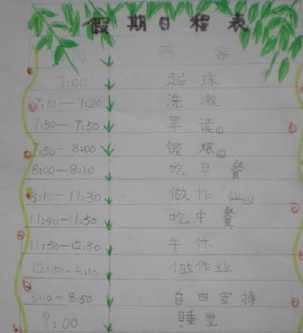 假期日程表
内容
7:00 起床
7:10—7:20 洗漱
7:30—7:50 早读
7:50—8:00 锻炼
8:00—8:10 吃早餐
8:10—11:30 做作业
11:40—11:50 吃中餐
11:50—12:30 午休
做作业
8:50 自由安排
9:00 睡觉